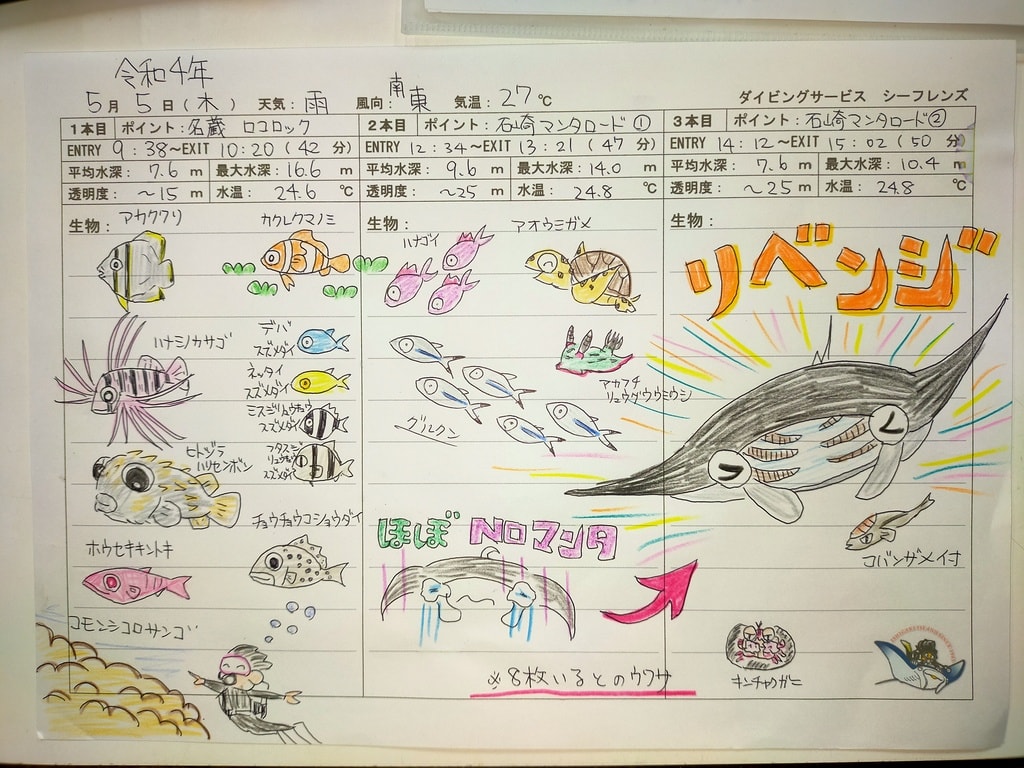 令和4年
5月 5日(木) 天気：雨 風向：南東 気温：27℃
ダイビングサービス シーフレンズ
1本目 ポイント：名蔵 ロコロック
ENTRY 9：38〜EXIT 10：20 (42 分)
平均水深：7.6 m 最大水深：16.6 m
透明度：〜15 m 水温：24.6 ℃
生物：
アカククリ
カクレクマノミ
ハナミノカサゴ
デバスズメダイ
ネッタイスズメダイ
ミスジリュウキュウスズメダイ
フタスジリュウキュウスズメダイ
ヒトヅラハリセンボン
チョウチョウコショウダイ
ホウセキキントキ
コモンシコロサンゴ
2本目 ポイント：石崎マンタロード①
ENTRY 12：34〜EXIT 13：21 (47 分)
平均水深：9.6 m 最大水深：14.0 m
透明度：〜25 m 水温：24.8 ℃
生物：
ハナゴイ
アオウミガメ
グルクン
アカフチリュウグウウミウシ
ほぼ NOマンタ
※8枚いるとのウワサ
3本目 ポイント：石崎マンタロード②
ENTRY 14：12〜EXIT 15：02 (50 分)
平均水深：7.6 m 最大水深：10.4 m
透明度：〜25 m 水温：24.8 ℃
生物：
リベンジ
コバンザメ付
キンチャクガニ